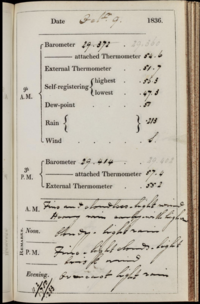 Date Feb 9. 1836.
9h A.M.
Barometer 29.372
attached Thermometer 54.4
External Thermometer 51.7
Self-registering Thermometer highest 56.3
lowest 47.3
Dew-point 51
Rain .213
Wind S.
9h P.M.
Barometer 29.414
attached Thermometer 57.4
External Thermometer 55.2
REMARKS.
A.M. Fine and cloudless. light wind
rain early light
Noon. Cloudy light rain
P.M. Fine light clouds. light
wind
Evening. Overcast light rain